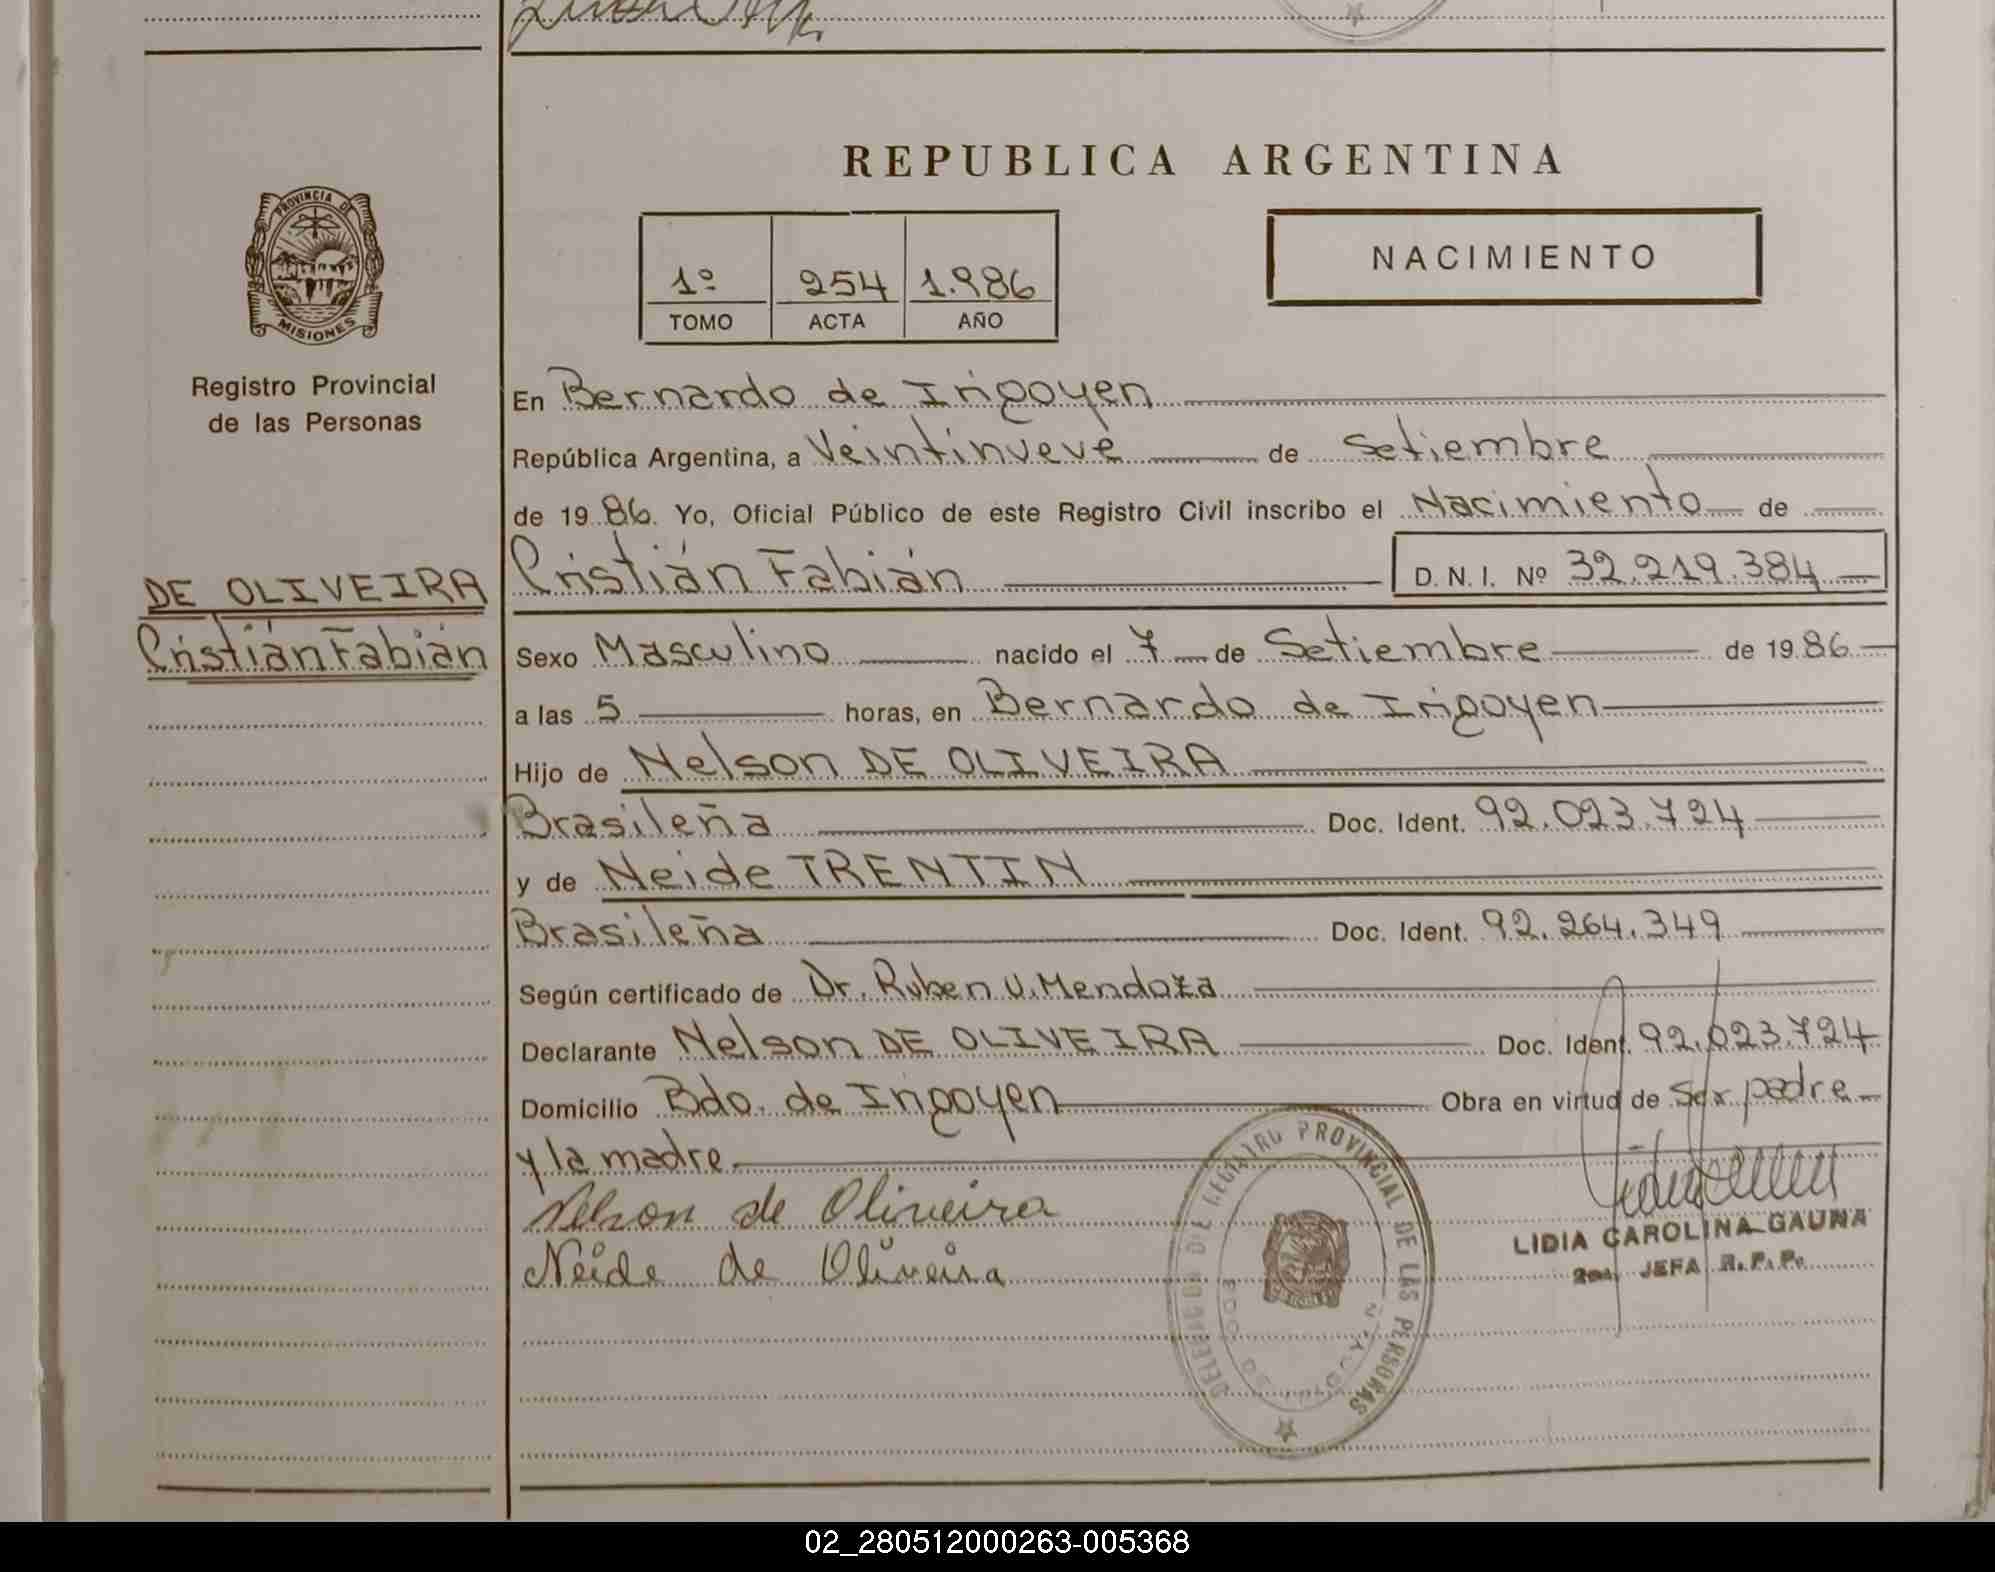 REPUBLICA ARGENTINA
PROVINCIA DE
MISIONES
Registro Provincial
de las Personas
1º 254 1.986
TOMO ACTA AÑO
NACIMIENTO
En Bernardo de Irigoyen
República Argentina, a Veintinueve de Setiembre
de 1986. Yo, Oficial Público de este Registro Civil inscribo el Nacimiento de
DE OLIVEIRA
Cristián Fabián
Cristián Fabián D. N. I. Nº 32.219.384
Sexo Masculino nacido el 7 de Setiembre de 1986
a las 5 horas, en Bernardo de Irigoyen
Hijo de Nelson DE OLIVEIRA
Brasileña Doc. Ident. 92.023.724
y de Neide TRENTIN
Brasileña Doc. Ident. 92.264.349
Según certificado de Dr. Ruben U. Mendoza
Declarante Nelson DE OLIVEIRA Doc. Ident. 92.023.724
Domicilio Bdo. de Irigoyen Obra en virtud de ser padre
y la madre
Nelson de Oliveira
Neide de Oliveira
DELEGACION DEL REGISTRO PROVINCIAL DE LAS PERSONAS
LIDIA CAROLINA GAUNA
JEFA R.P.P.
02_280512000263-005368